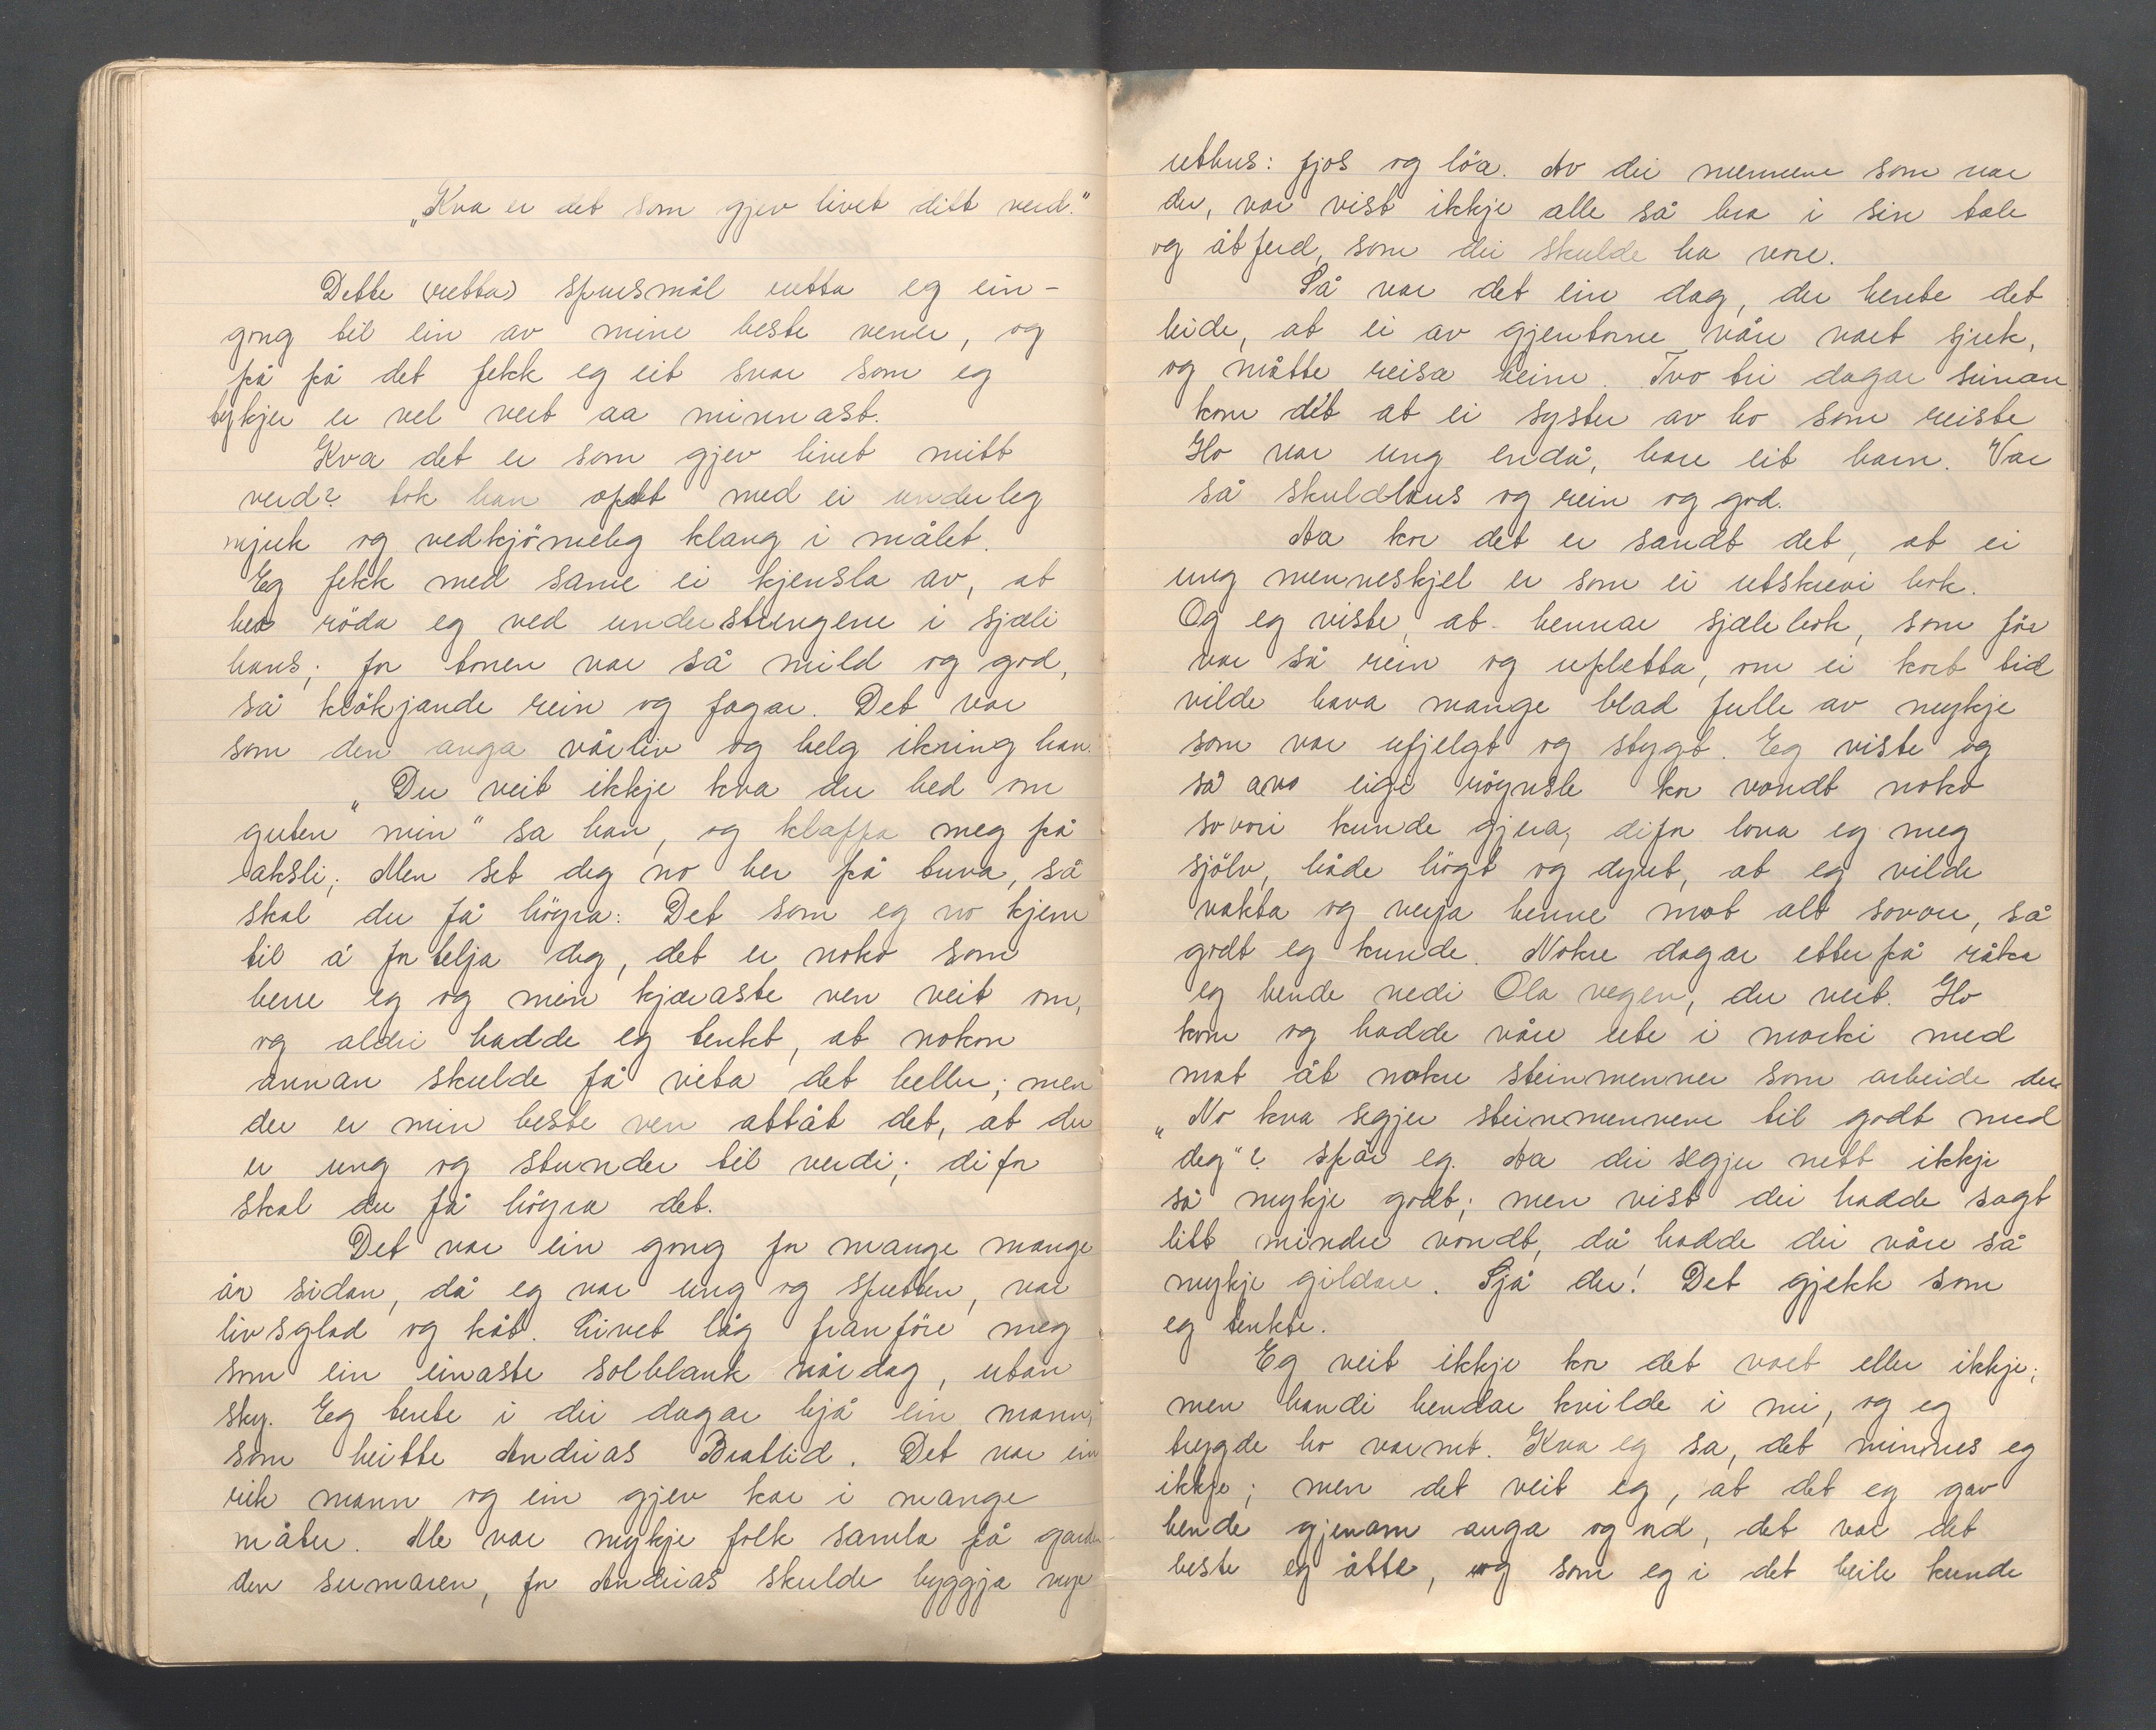 „Kva er det som gjev livet ditt verd."
Dette (retta) spursmål retta eg ein-
gong til ein av mine beste vener, og
på på det fekk eg eit svar som eg
tykjer er vel vert aa minnast.
Kva det er som gjev livet mitt
verd? tok han opatt med ei underleg
mjuk og vedkjömeleg klang i målet.
Eg fekk med same ei kjensla av, at
her röda eg ved understrengene i sjæli
hans; for tonen var så mild og god,
så klökjande rein og fager. Det var
som den anga vårliv og helg ikring han.
„Du veit ikkje kva du bed om
guten min" sa han, og klappa meg på
aksli; Men set deg no her på tuva, så
skal du få högra: Det som eg no kjem
til å fortelja deg, det er noko som
berre eg og min kjæraste ven veit om,
og aldri hadde eg tenkt, at nokon
annan skulde få vita det heller; men
du er min beste ven attåt det, at du
er ung og stunder til verdi; difor
skal du få högra det.
Det var ein gong for mange mange
år sidan, då eg var ung og spretten, var
livsglad og kåt. Livet låg framföre meg
som ein einaste solblank vårdag, utan
sky. Eg tente i dei dagar hjå ein mann,
som heitte Andreas Brattlid. Det var ein
rik mann og ein gjev kar i mange
måter. Me var mykje folk samla på garden
den sumaren, for Andreas skulde byggja nye
uthus: fjos og löa. Av dei mennene som var
der, var visst ikkje alle så bra i sin tale
og åtferd, som dei skulde ha vore.
Så var det ein dag, der hente det
leide, at ei av gjentorne våre vart sjuk,
og måtte reisa heim. Tvo tri dagar seinan
kom det at ei syster av ho som reiste
Ho var ung endå, bare eit barn. Var
så skuldlaus og rein og god.
Aa kor det er sandt det, at ei
ung menneskjel er som ei utskrevi bok.
Og eg viste, at hennar sjælebok, som för
var så rein og upletta, om ei kort tid
vilde hava mange blad fulle av mykje
som var ufjelgt og stygt. Eg viste og
så avo eige röynsle kor vondt noko
sovori kunde gjera, difor lova eg meg
sjölv, både högt og dyrt, at eg vilde
vakta og verja henne mot alt sovore, så
godt eg kunde. Nokre dagar etterpå råka
eg hende nedi Ola vegen, du veit. Ho
kom og hadde våre ute i marki med
mat åt nokre steinmenner som arbeide der
„No kva segjer steinmennene til godt med
deg"? spår eg. Aa dei segjer nett ikkje
så mykje godt; men vist dei hadde sagt
litt mindre vondt, då hadde dei våre så
mykje gildare. Sjå der! Det gjekk som
eg tenkte.
Eg veit ikkje kor det vart eller ikkje;
men handi hendar kvilde i mi, og eg
trygde ho varmt. Kva eg sa, det minnes eg
ikkje; men det veit eg, at det eg gav
hende gjenom auga og ord, det var det
beste eg åtte, og som eg i det heile kunde